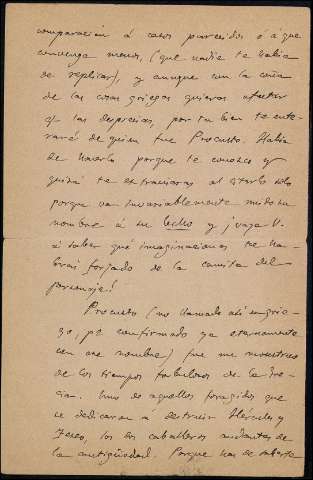 comparación á casos parecidos ó á que
convenga menos, (que nadie te había
de replicar), y aunque con la coña
de las cosas griegas quieras afectar
q. las desprecias, por tu bien te ente-
raré de quien fue Procusto. Había
de hacerlo porque te conozco y
quizá te extraviaras al citarlo sólo
porque va invariablemente unido su
nombre á su lecho y ¡vaya V.
á saber qué imaginaciones te ha-
brás forjado de la camita del
personaje!
Procusto (no llamado así en grie-
go, pº confirmado ya eternamente
con ese nombre) fue un monstruo
de los tiempos fabulosos de la Gre-
cia. Uno de aquellos foragidos que
se dedicaran á destruir Hércules y
Teseo, los dos caballeros andantes de
la antigüedad. Porque has de saberte